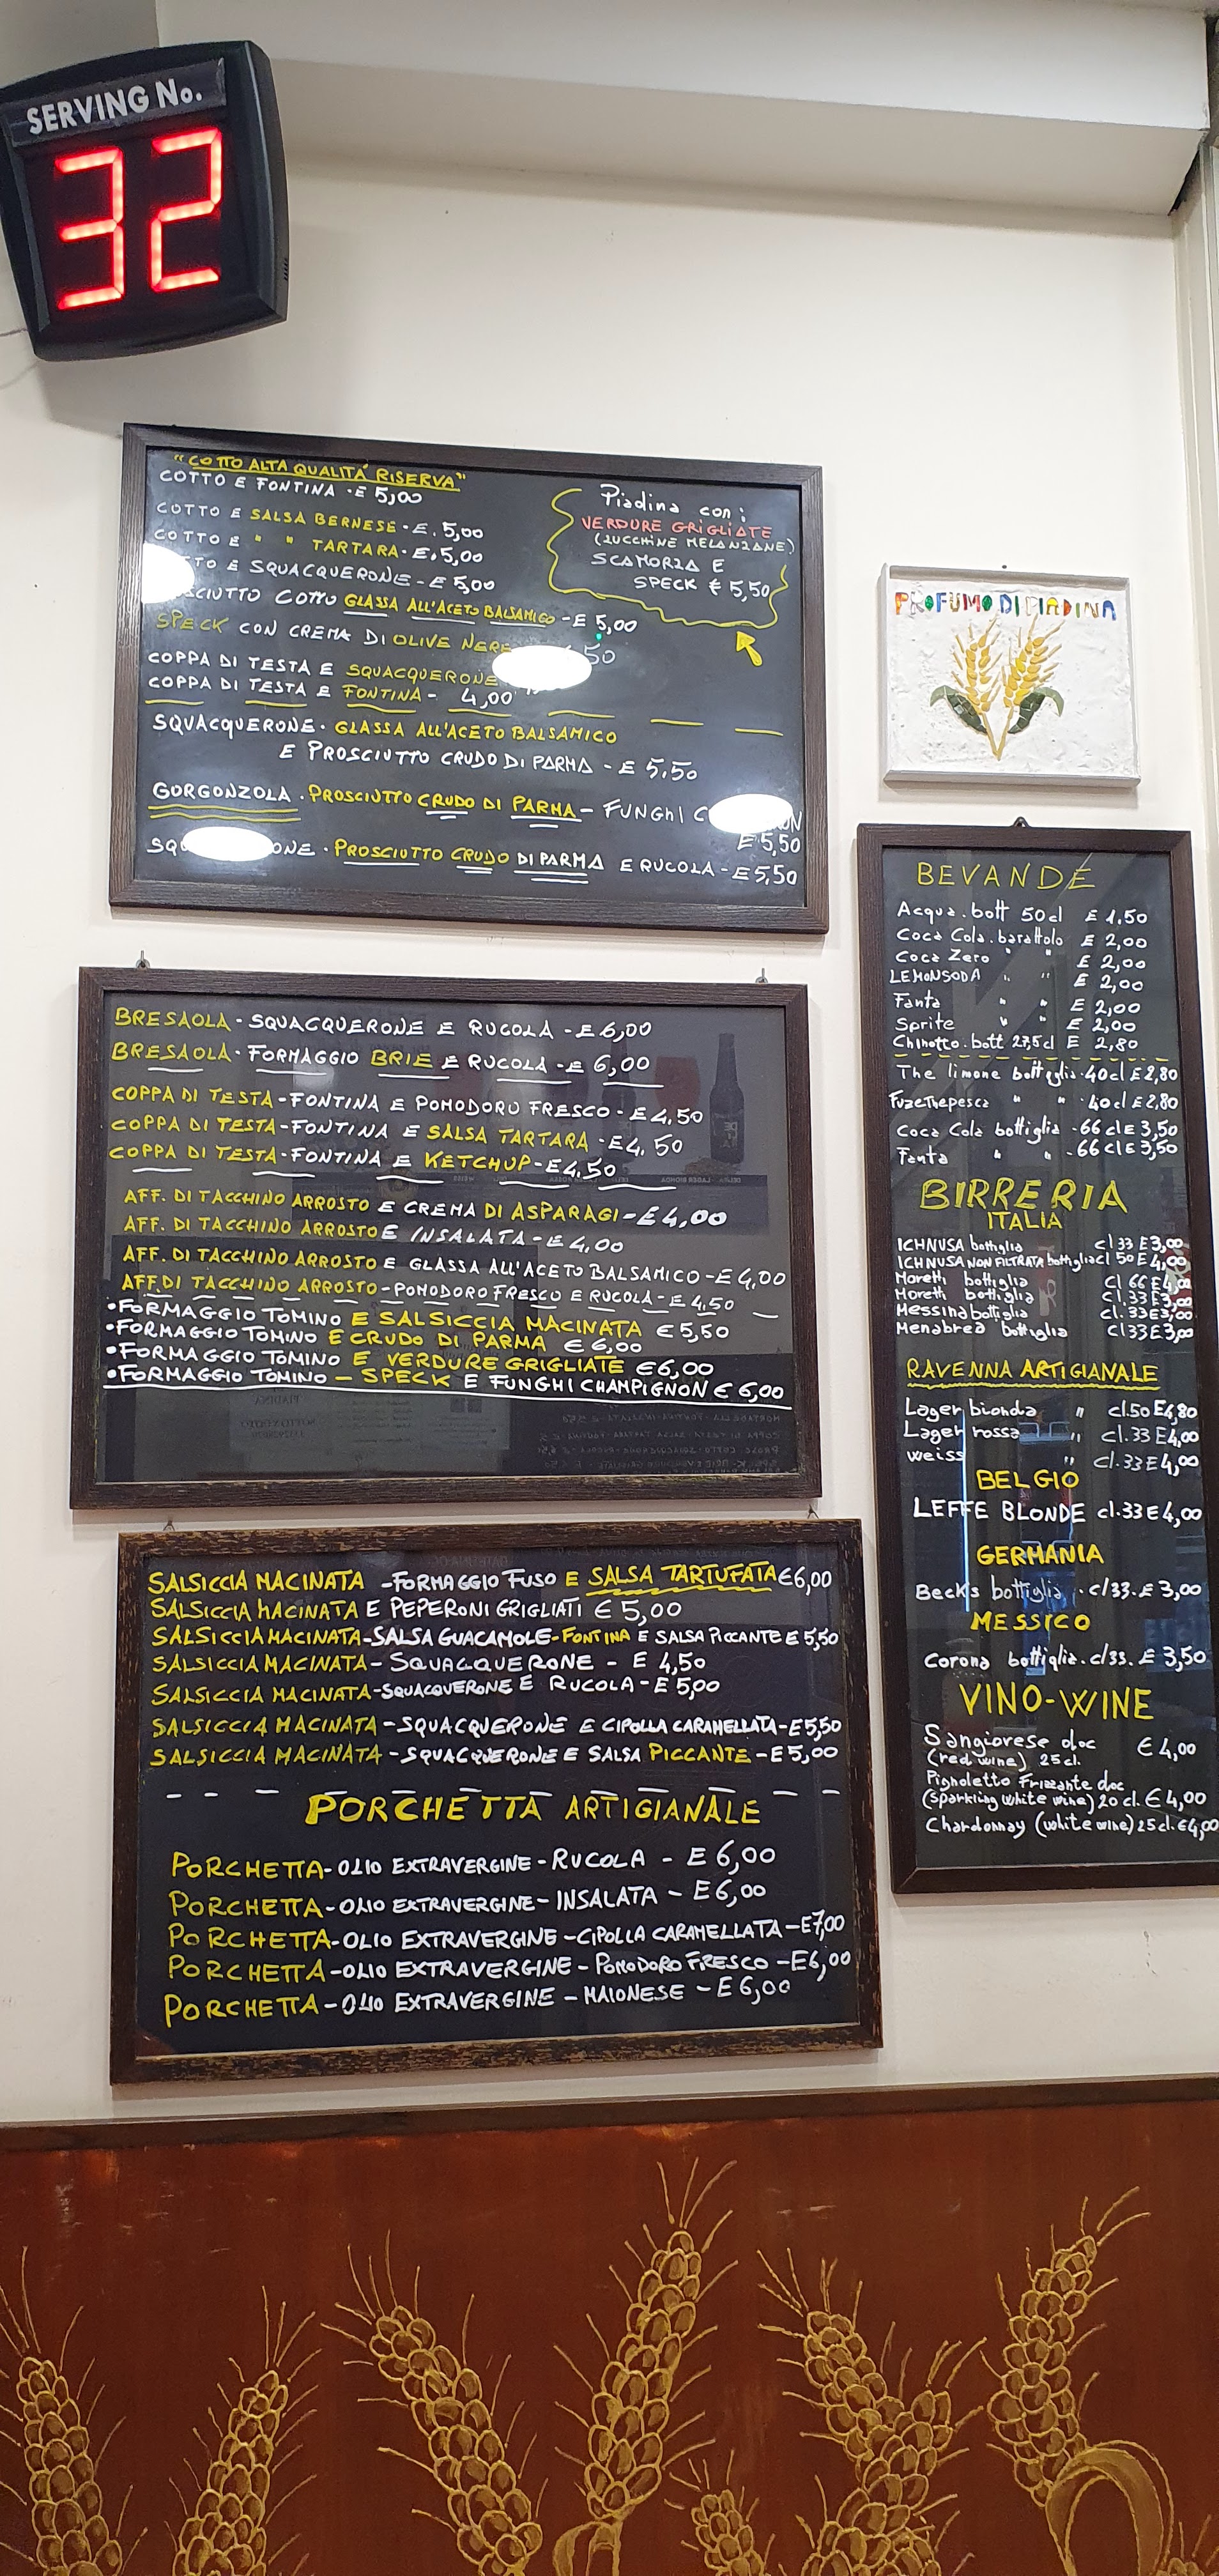 SERVING No.
32
"COTTO ALTA QUALITÀ RISERVA"
COTTO E FONTINA · E 5,00
COTTO E SALSA BERNESE · E. 5,00
COTTO E " " TARTARA · E. 5,00
E SQUACQUERONE - E 5,00
COTTO GLASSA ALL'ACETO BALSAMICO - E 5,00
SPECK CON CREMA DI OLIVE NERE
COPPA DI TESTA E SQUACQUERONE
COPPA DI TESTA E FONTINA - 4,00
SQUACQUERONE · GLASSA ALL'ACETO BALSAMICO
E PROSCIUTTO CRUDO DI PARMA - E 5,50
GORGONZOLA · PROSCIUTTO CRUDO DI PARMA - FUNGHI
E 5,50
PROSCIUTTO CRUDO DI PARMA E RUCOLA - E 5,50
Piadina con:
VERDURE GRIGLIATE
(ZUCCHINE MELANZANE)
SCAMORZA E
SPECK € 5,50
PROFUMO DI PIADINA
BRESAOLA - SQUACQUERONE E RUCOLA - E 6,00
BRESAOLA - FORMAGGIO BRIE E RUCOLA - E 6,00
COPPA DI TESTA - FONTINA E POMODORO FRESCO - E 4,50
COPPA DI TESTA - FONTINA E SALSA TARTARA - E 4,50
COPPA DI TESTA - FONTINA E KETCHUP - E 4,50
AFF. DI TACCHINO ARROSTO E CREMA DI ASPARAGI - E 4,00
AFF. DI TACCHINO ARROSTO E INSALATA - E 4,00
AFF. DI TACCHINO ARROSTO E GLASSA ALL'ACETO BALSAMICO - E 4,00
AFF. DI TACCHINO ARROSTO - POMODORO FRESCO E RUCOLA - E 4,50
• FORMAGGIO TOMINO E SALSICCIA MACINATA € 5,50
• FORMAGGIO TOMINO E CRUDO DI PARMA € 6,00
• FORMAGGIO TOMINO E VERDURE GRIGLIATE € 6,00
• FORMAGGIO TOMINO - SPECK E FUNGHI CHAMPIGNON € 6,00
SALSICCIA MACINATA - FORMAGGIO FUSO E SALSA TARTUFATA € 6,00
SALSICCIA MACINATA E PEPERONI GRIGLIATI € 5,00
SALSICCIA MACINATA - SALSA GUACAMOLE - FONTINA E SALSA PICCANTE E 5,50
SALSICCIA MACINATA - SQUACQUERONE - E 4,50
SALSICCIA MACINATA - SQUACQUERONE E RUCOLA - E 5,00
SALSICCIA MACINATA - SQUACQUERONE E CIPOLLA CARAMELLATA - E 5,50
SALSICCIA MACINATA - SQUACQUERONE E SALSA PICCANTE - E 5,00
PORCHETTA ARTIGIANALE
PORCHETTA - OLIO EXTRAVERGINE - RUCOLA - E 6,00
PORCHETTA - OLIO EXTRAVERGINE - INSALATA - E 6,00
PORCHETTA - OLIO EXTRAVERGINE - CIPOLLA CARAMELLATA - E 7,00
PORCHETTA - OLIO EXTRAVERGINE - POMODORO FRESCO - E 6,00
PORCHETTA - OLIO EXTRAVERGINE - MAIONESE - E 6,00
BEVANDE
Acqua . bott 50 cl E 1,50
Coca Cola . barattolo E 2,00
Coca Zero " " E 2,00
LEMONSODA " " E 2,00
Fanta " " E 2,00
Sprite " " E 2,00
Chinotto . bott 27,5 cl E 2,80
The limone bottiglia · 40 cl E 2,80
Fuzethepesca " " · 40 cl E 2,80
Coca Cola bottiglia - 66 cl E 3,50
Fanta " " - 66 cl E 3,50
BIRRERIA
ITALIA
ICHNUSA bottiglia cl 33 E 3,00
ICHNUSA NON FILTRATA bottiglia cl 50 E 4,00
Moretti bottiglia cl 66 E 4,00
Moretti bottiglia cl. 33 E 3,00
Messina bottiglia cl. 33 E 3,00
Menabrea bottiglia cl 33 E 3,00
RAVENNA ARTIGIANALE
Lager bionda " cl. 50 E 4,80
Lager rossa " cl. 33 E 4,00
weiss " cl. 33 E 4,00
BELGIO
LEFFE BLONDE cl. 33 E 4,00
GERMANIA
Beck's bottiglia · cl 33 · E 3,00
MESSICO
Corona bottiglia · cl 33 · E 3,50
VINO-WINE
Sangiovese doc € 4,00
(red wine) 25 cl.
Pignoletto Frizzante doc
(sparkling white wine) 20 cl. € 4,00
Chardonnay (white wine) 25 cl. € 4,00